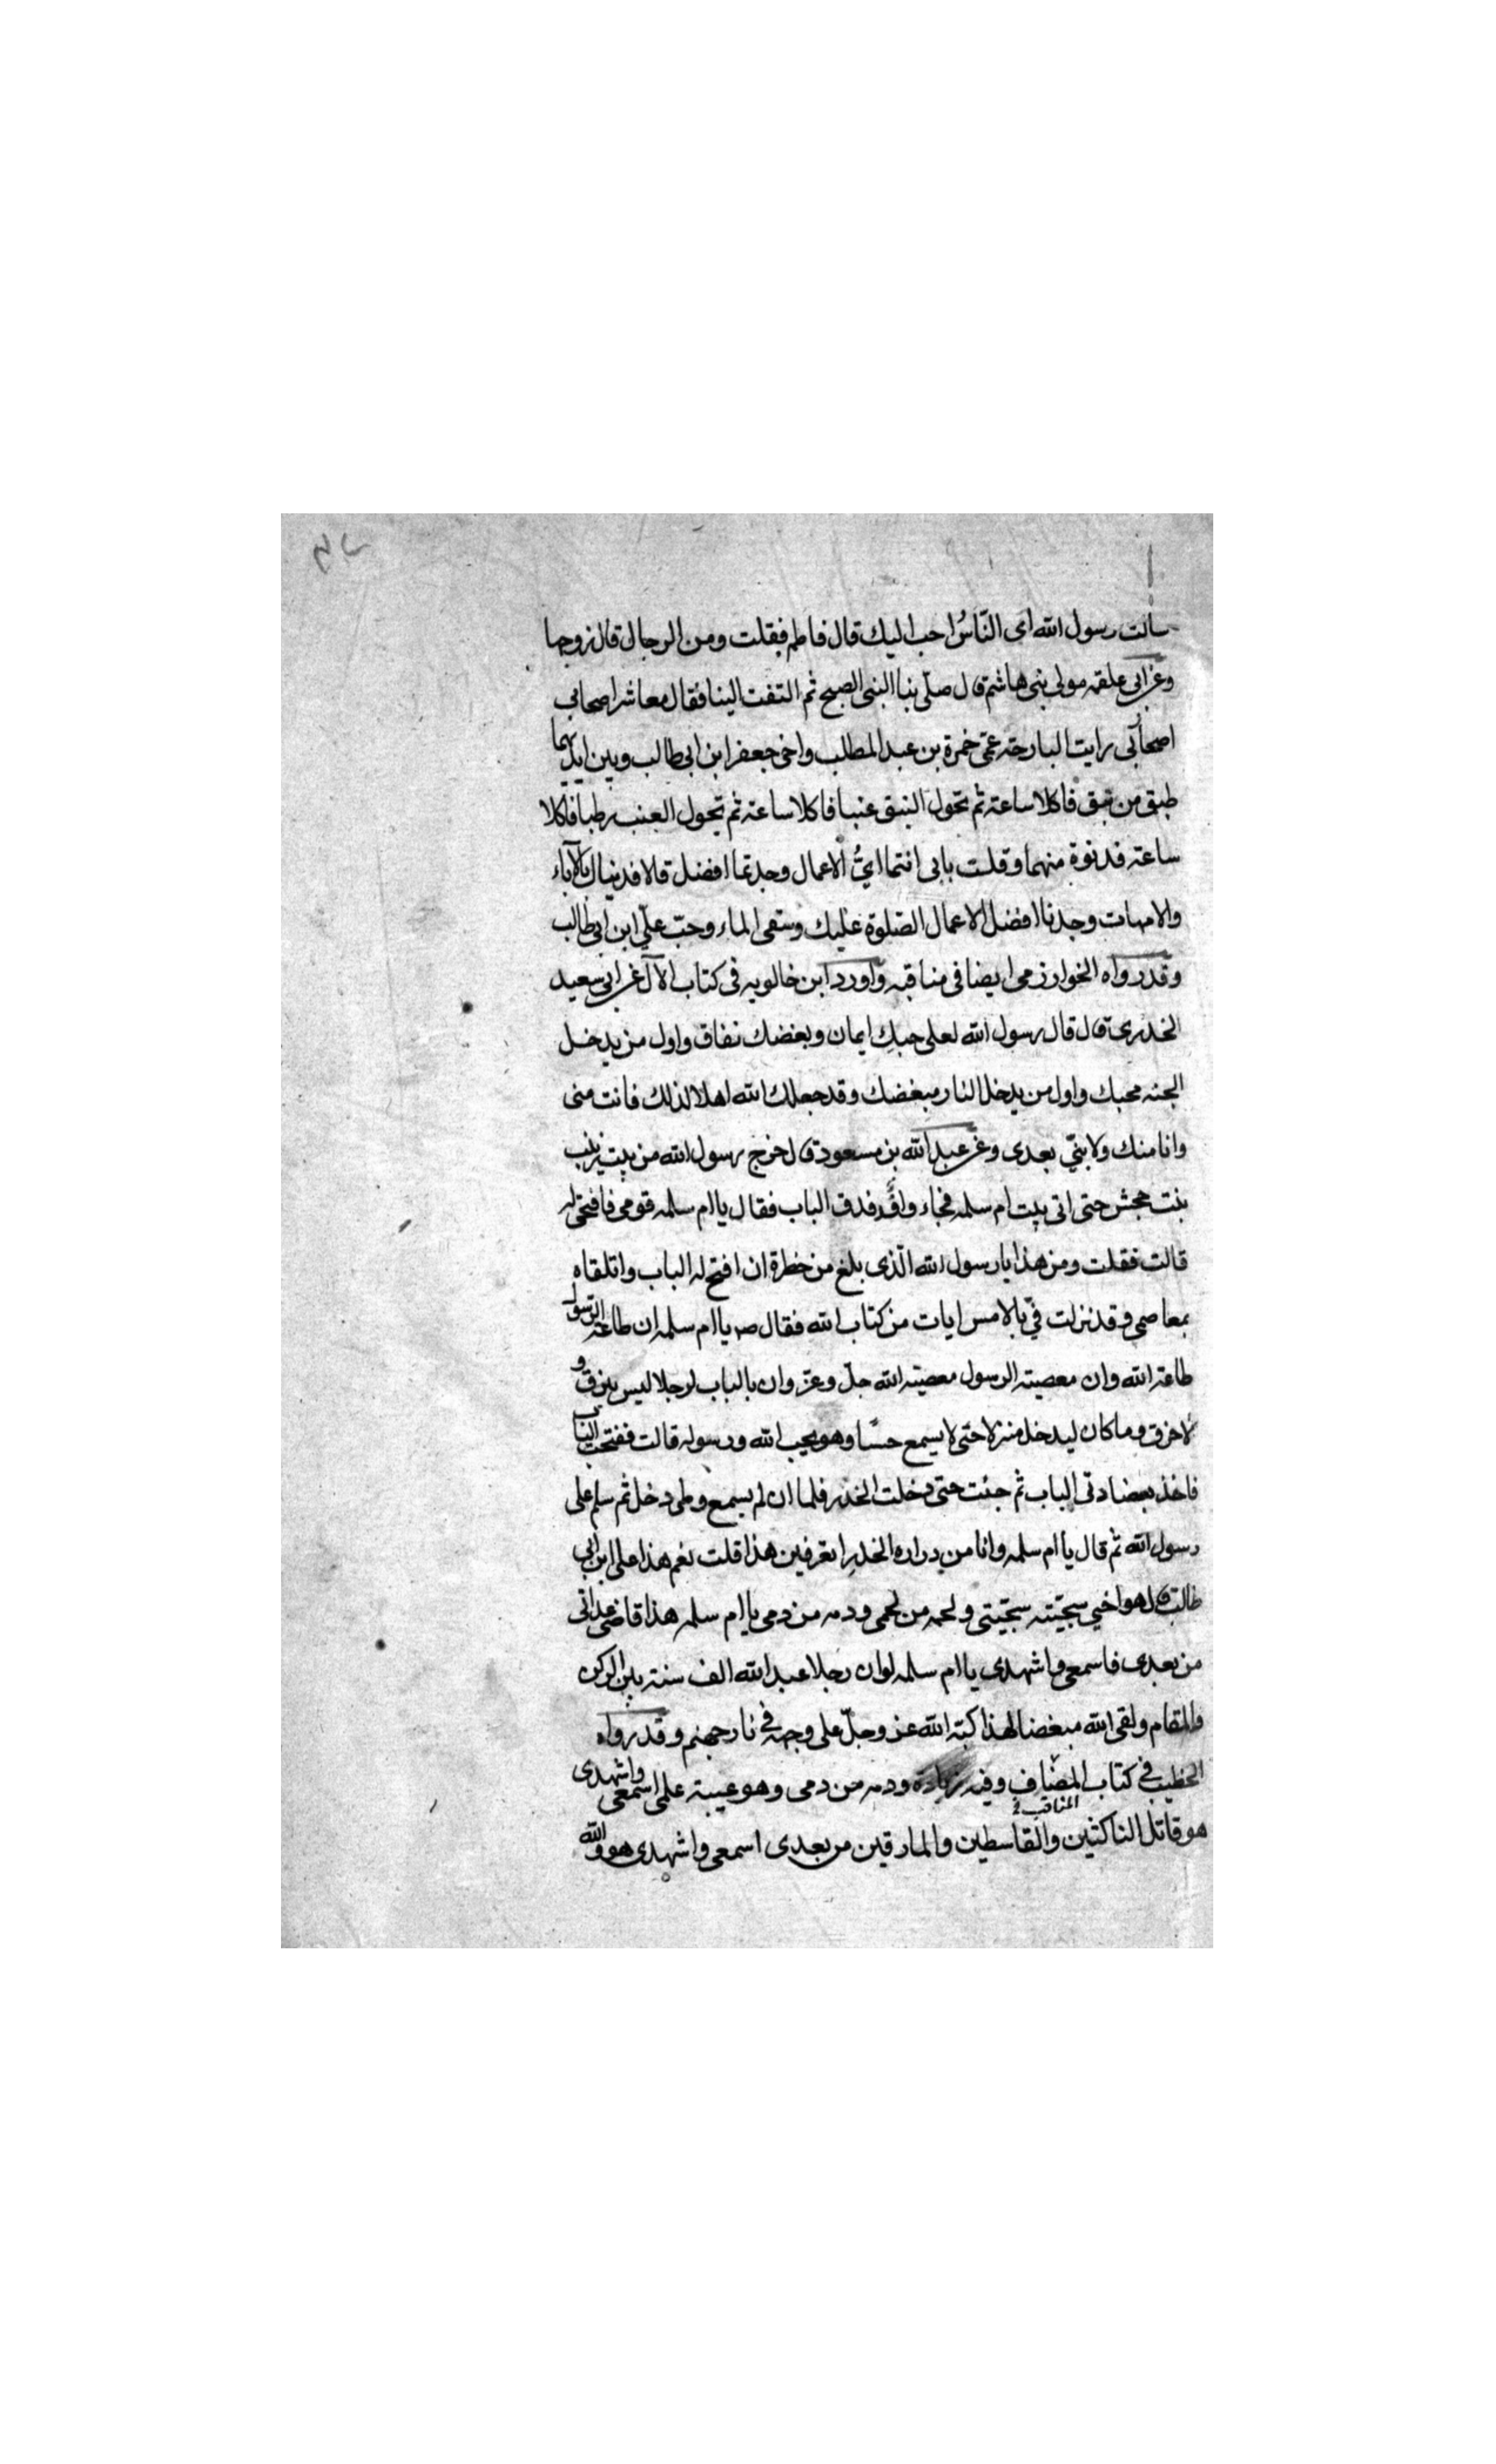 سالت رسول الله اى النّاسُ احب اليك قال فاطمه فقلت ومن الرجال قال زوجها
وعن ابى علقمه مولى بنى هاشم قال صلّى بنا النبى الصبح ثم التفت الينا فقال معاشر اصحابى
اصحابى رايت البارحة عمّى حمزة بن عبد المطلب واخى جعفر ابن ابى طالب وبين ايديهما
طبق من نبق فاكلا ساعة ثم تحول النبق عنبا فاكلا ساعة ثم تحول العنب رطبا فاكلا
ساعة فدنوة منهما وقلت بابى انتما اىُّ الاعمال وجدتما افضل قالا فديناك بالآباء
والامهات وجدنا افضل الاعمال الصّلوة عليك وسقى الماء وحبّ علىّ ابن ابى طالب
وقد رواه الخوارزمى ايضا فى مناقبه واورد ابن خالويه فى كتاب الآل عن ابى سعيد
الخدرى قال قال رسول الله لعلى حبك ايمان وبغضك نفاق واول من يدخل
الجنه محبك واول من يدخل النار مبغضك وقد جعلك الله اهلا لذلك فانت منى
وانا منك ولا نبىّ بعدى وعن عبد الله بن مسعود قال خرج رسول الله من بيت زينب
بنت حجش حتى اتى بيت ام سلمه فجاء واقد فدق الباب فقال يا ام سلمه قومى فافتحى له
قالت فقلت ومن هذا يا رسول الله الّذى بلغ من خطرة ان افتح له الباب واتلقاه
بمعاصمى وقد نزلت فىّ بالامس ايات من كتاب الله فقال صه يا ام سلمه ان طاعة الرّسول
طاعة الله وان معصيته الرسول معصيته الله جلّ وعزّ وان بالباب لرجلا ليس بنزق و
لا خرق وما كان ليدخل منزلا حتى لا يسمع حسّا وهو يحب الله ورسوله قالت ففتحت الباب
فاخذ بعضادتى الباب ثم جئت حتى دخلت الخدر فلما ان لم يسمع وطى دخل ثم سلم على
رسول الله ثم قال يا ام سلمه وانا من وراه الخدر اتعرفين هذا قلت نعم هذا على ابن ابى
طالب قال هو اخى سجيّته سجيّتى ولحمه من لحمى ودمه من دمى يا ام سلمه هذا قاضى عداتى
من بعدى فاسمعى واشهدى يا ام سلمه لو ان رجلا عبد الله الف سنة بين الركن
والمقام ولقى الله مبغضا لهذا كبّه الله عز وجلّ على وجهه فى نار جهنم وقد رواه
الخطيب فى كتاب المضاف وفيه زيادة ودمه من دمى وهو عيبة علمى اسمعى واشهدى
المناقب
هو قاتل الناكثين والقاسطين والمارقين من بعدى اسمعى واشهدى هو والله